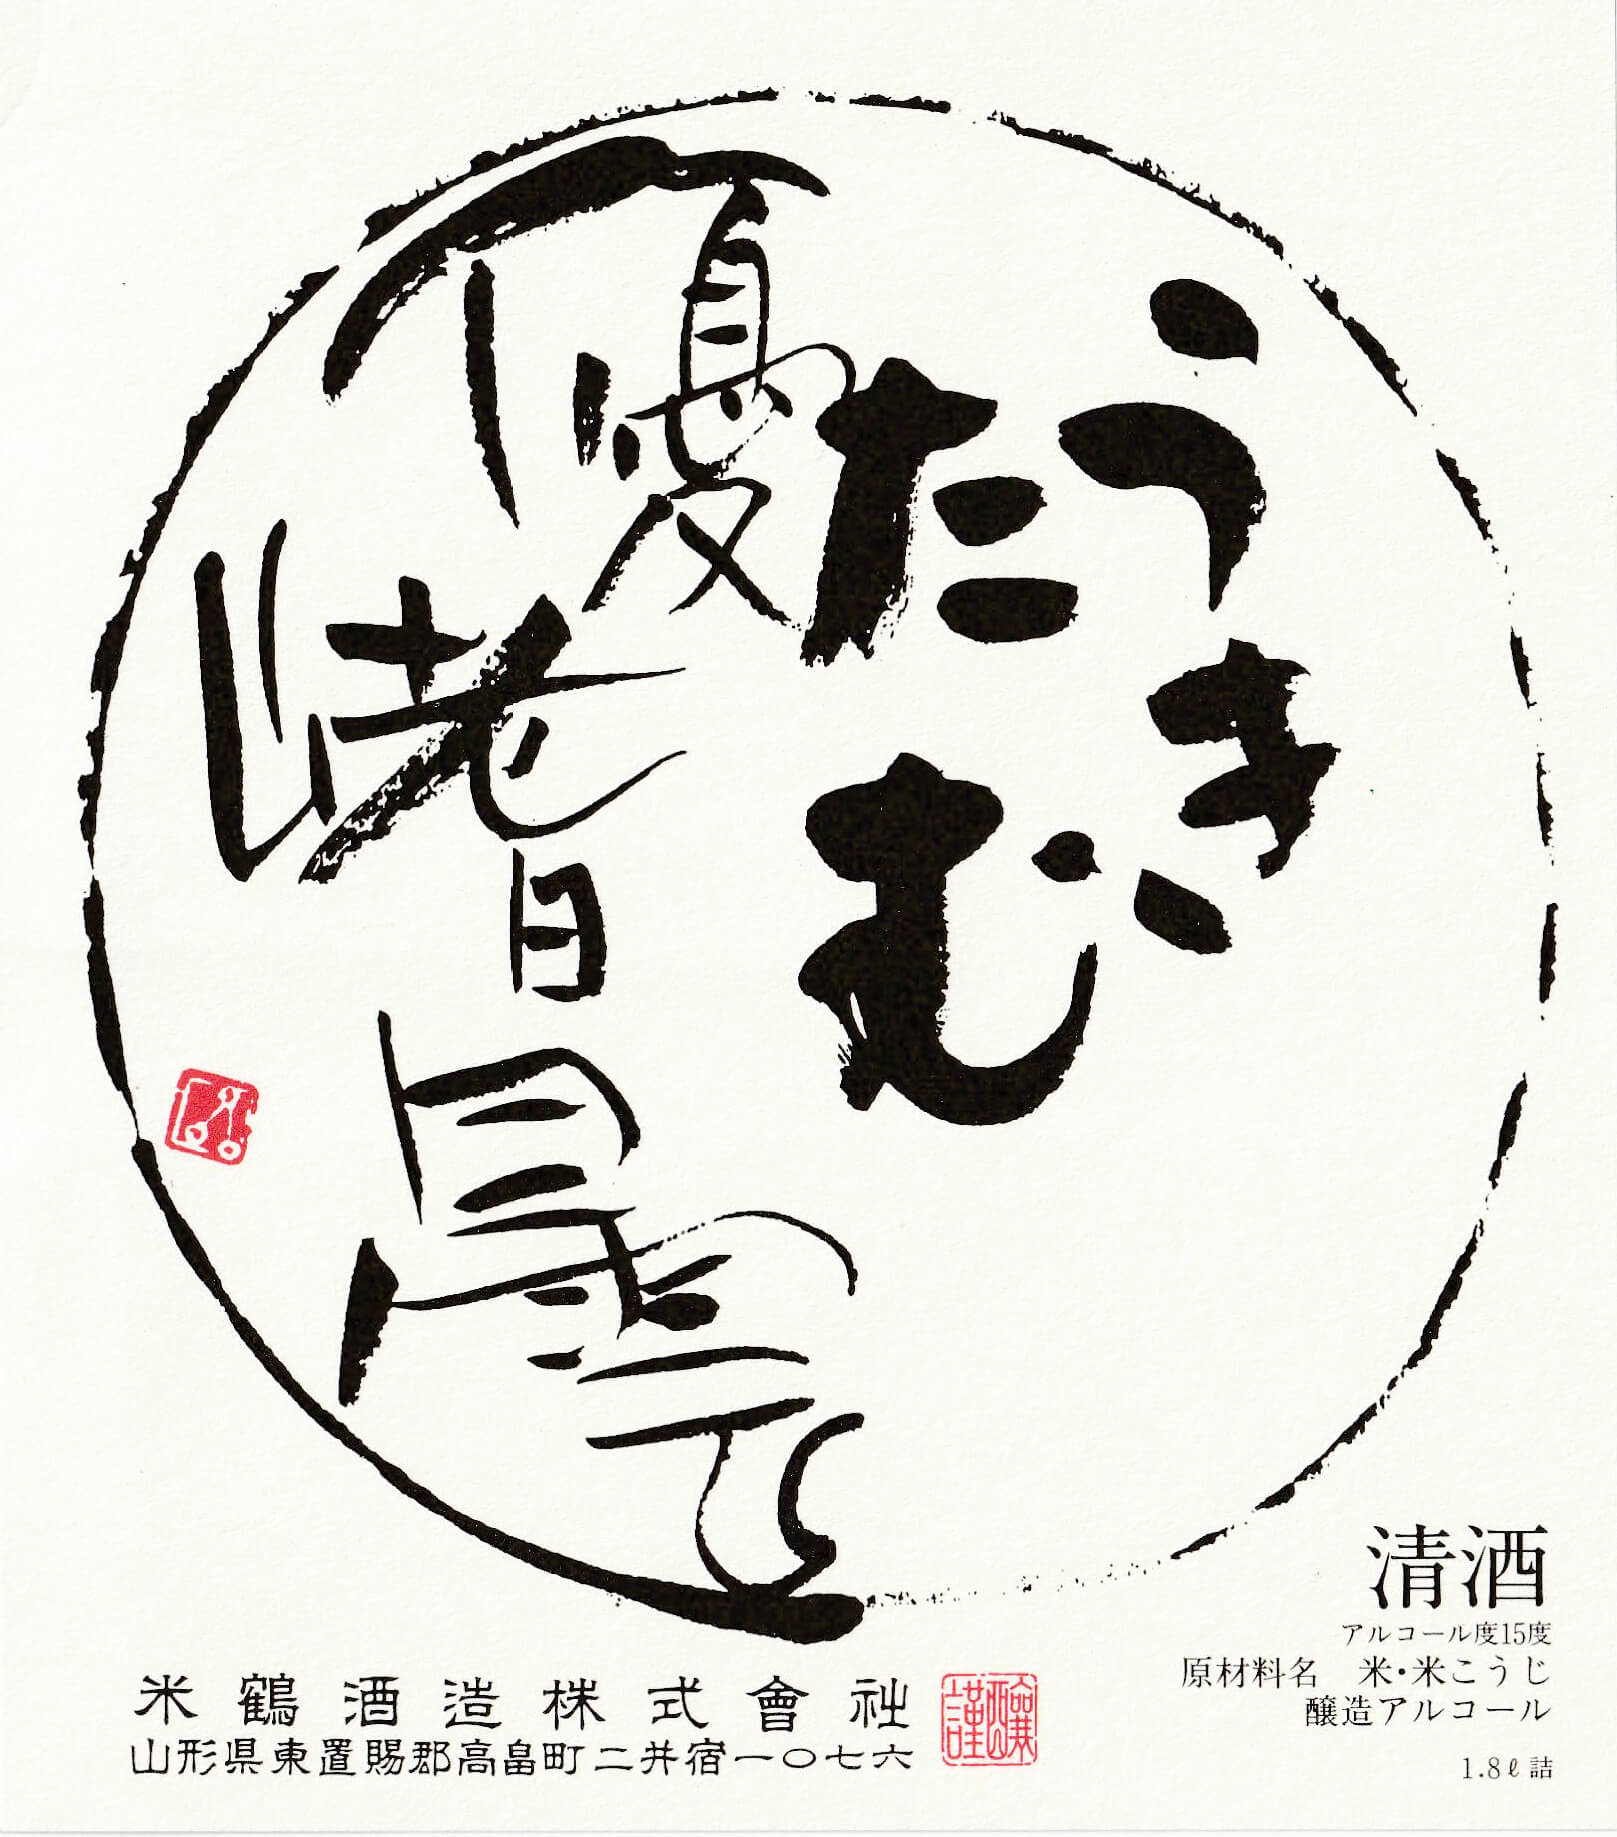 うき
たむ
優嗜曇
清酒
アルコール度15度
原材料名　米・米こうじ
醸造アルコール
1.8ℓ詰
米鶴酒造株式會社
山形県東置賜郡高畠町二井宿一〇七六
謹釀